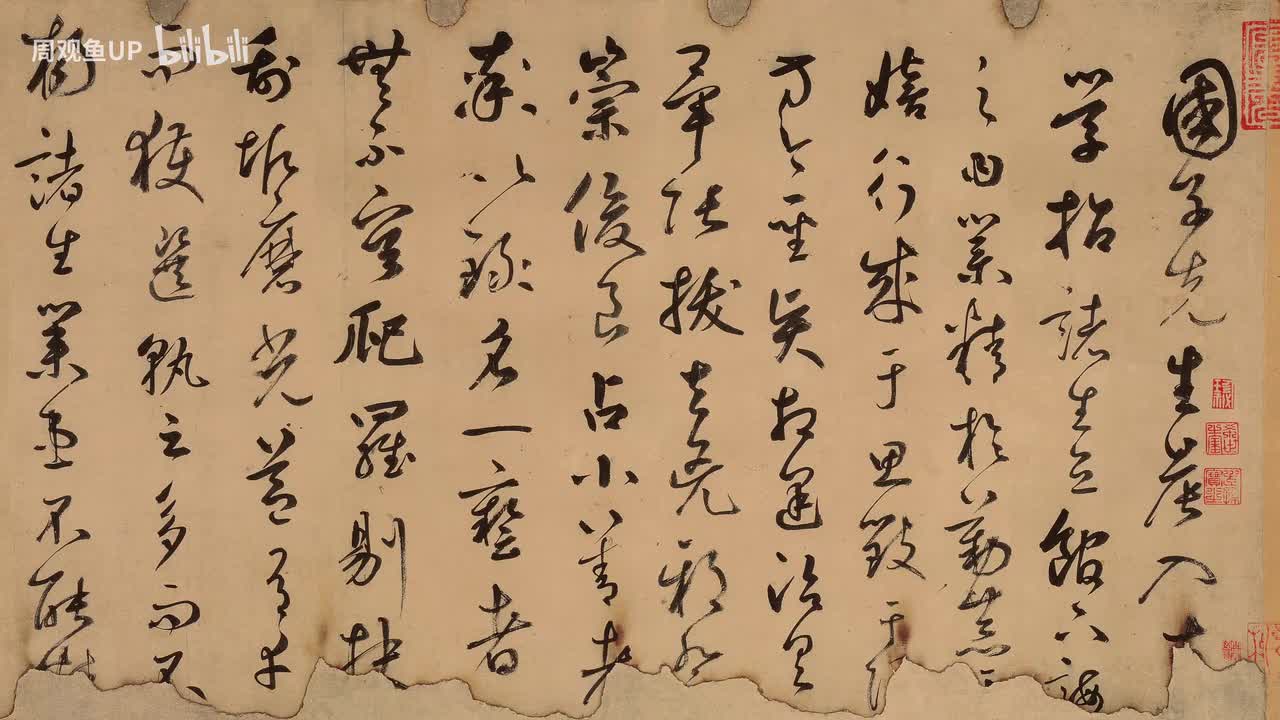 周观鱼UP bilibili
國子先生晨入太
學招諸生立館下誨
之曰業精於勤荒于
嬉行成于思毀于
方今聖賢相逢治具
畢張拔去兇邪登
崇俊良占小善者
率以錄名一藝者
無不庸爬羅剔抉
刮垢磨光蓋有幸
而獲選孰云多而不
揚諸生業患不能